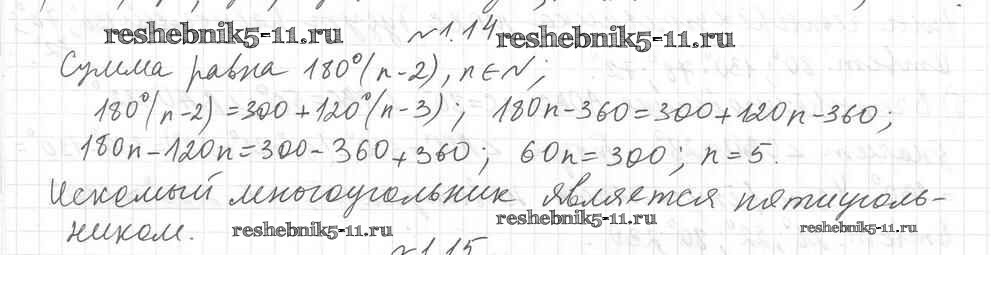 reshebnik5-11.ru №1.14 reshebnik5-11.ru
Сумма равна 180°(n-2), n∈N;
180°(n-2)=300+120°(n-3); 180n-360=300+120n-360;
180n-120n=300-360+360; 60n=300; n=5.
Искомый многоугольник является пятиуголь-
ником. reshebnik5-11.ru reshebnik5-11.ru reshebnik5-11.ru
№1.15